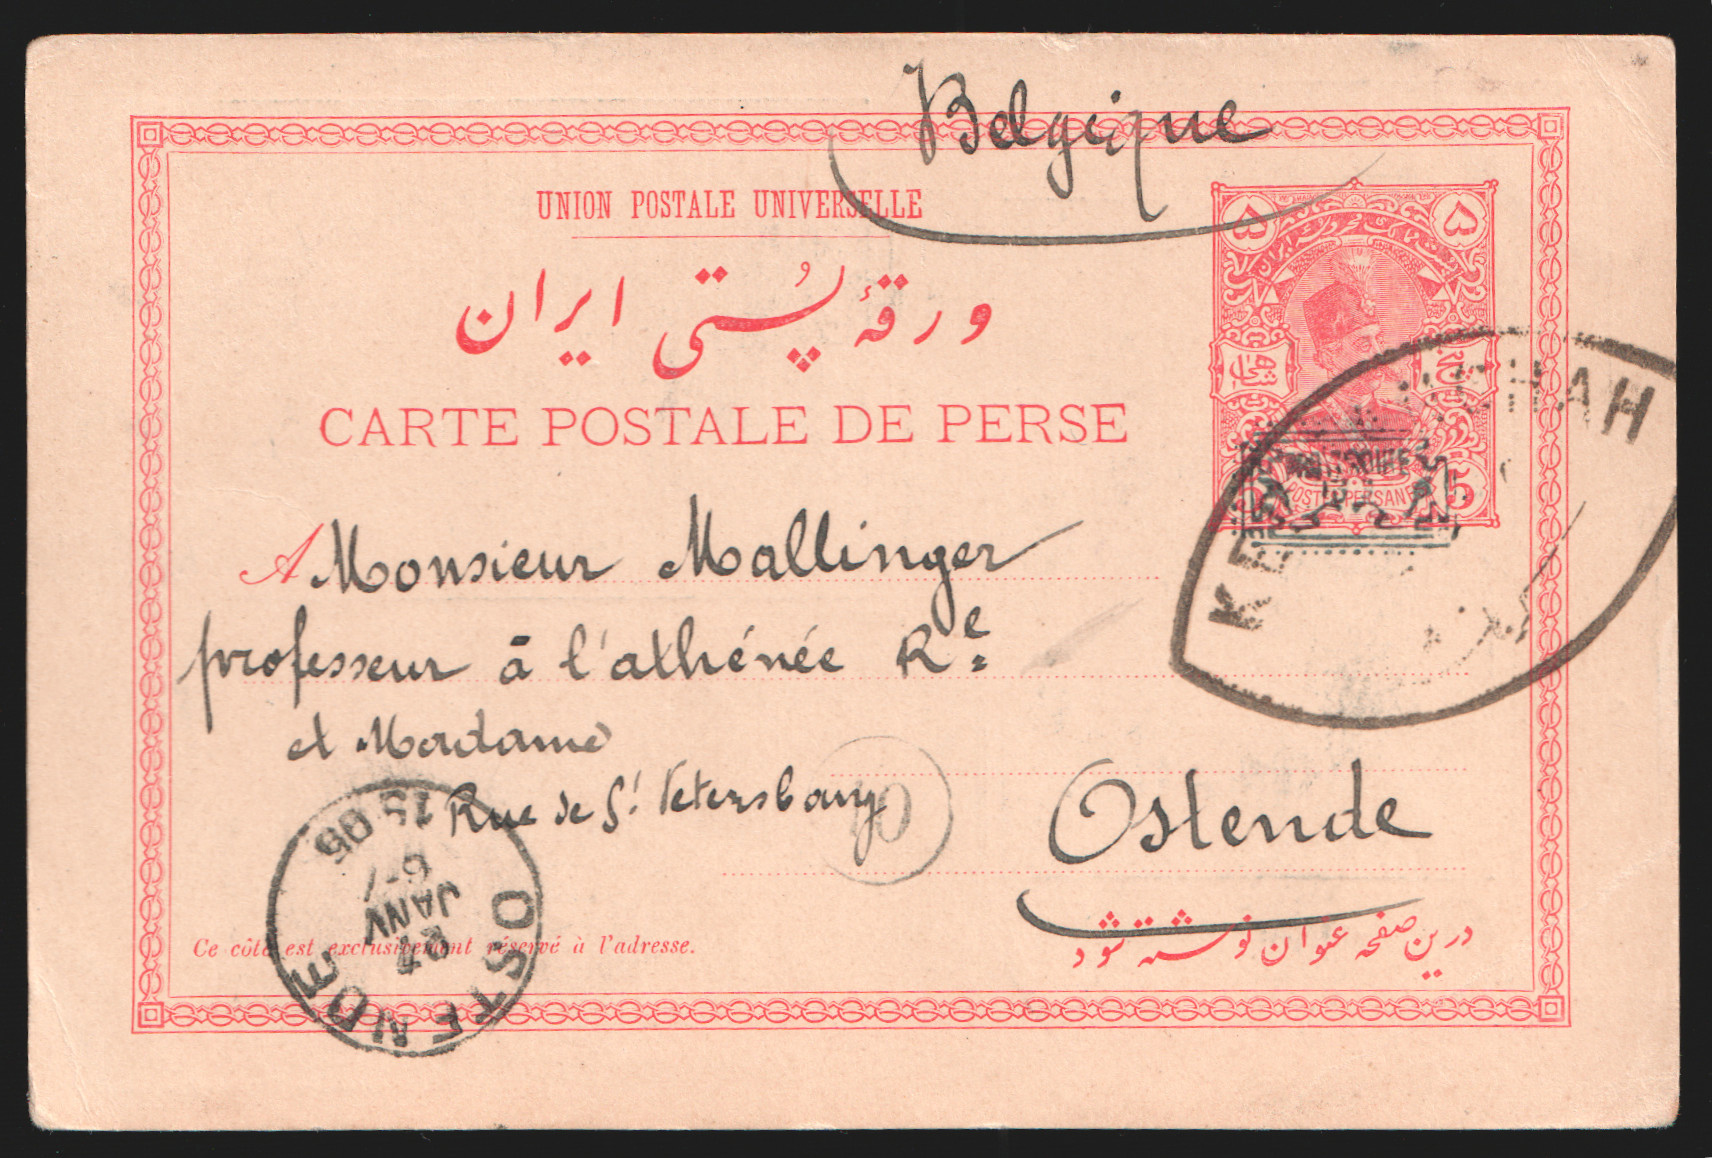 Belgique
UNION POSTALE UNIVERSELLE
ورقهٔ پُستی ایران
CARTE POSTALE DE PERSE
۵ ۵
شاهی پنج
PROVISOIRE
POSTE PERSANE
5
A Monsieur Mallinger
professeur à l'athénée Re
et Madame
Rue de St Petersbourg
Ostende
Ce côté est exclusivement réservé à l'adresse.
درین صفحه عنوان نوشته شود
OSTENDE
27
JANV
15